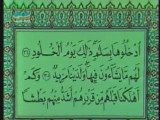 ادْخُلُوهَا بِسَلَٰمٍ ذَٰلِكَ يَوْمُ الْخُلُودِ ٣٤
لَهُم مَّا يَشَآءُونَ فِيهَا وَلَدَيْنَا مَزِيدٌ ٣٥ وَكَمْ
أَهْلَكْنَا قَبْلَهُم مِّن قَرْنٍ هُمْ أَشَدُّ مِنْهُم بَطْشًا